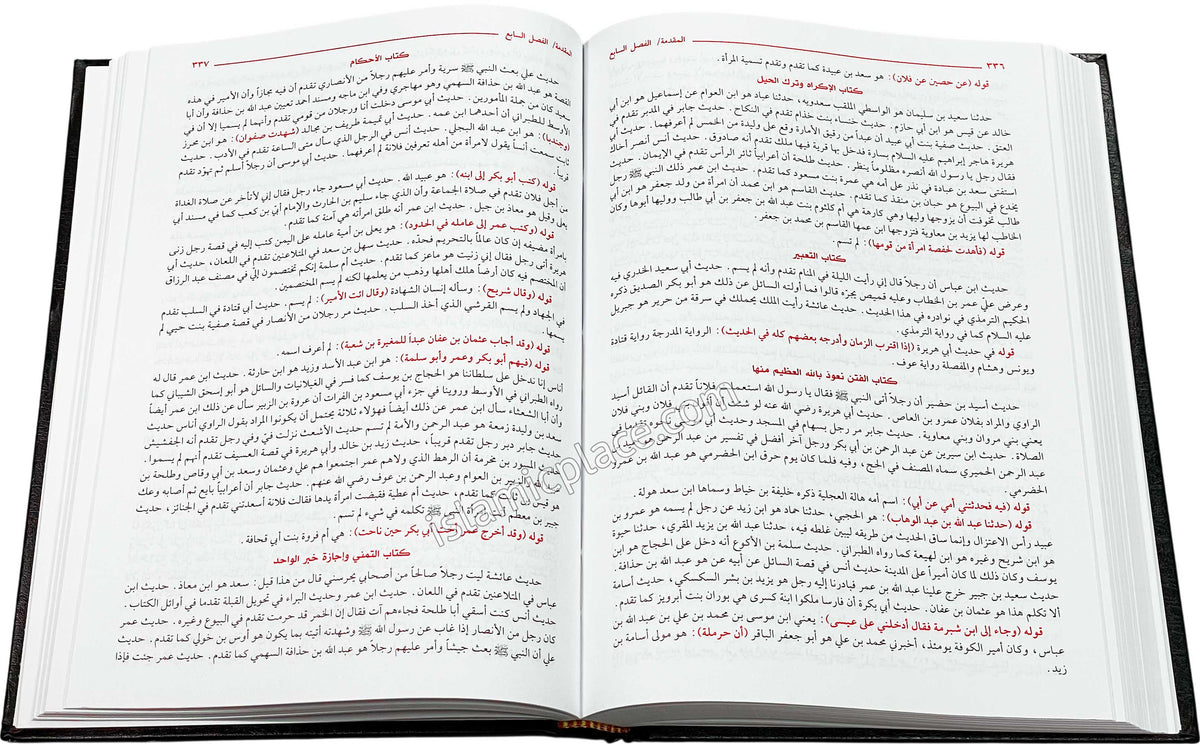 ٣٣٦
المقدمة/ الفصل السابع
قوله (عن حصين عن فلان) : هو سعد بن عبيدة كما تقدم وتقدم تسمية المرأة .
كتاب الإكراه وترك الحيل
حدثنا سعيد بن سليمان هو الواسطي الملقب سعدويه، حدثنا عباد هو ابن العوام عن إسماعيل هو ابن أبي
خالد عن قيس هو ابن أبي حازم. حديث خنساء بنت خذام تقدم في النكاح . حديث جابر في المدبر تقدم في
العتق . حديث صفية بنت أبي عبيد أن عبداً من رقيق الأمارة وقع على وليدة من الخمس لم أعرفهما . حديث أبي
هريرة هاجر إبراهيم عليه السلام بسارة فدخل بها قرية فيها ملك تقدم أنه صادوق . حديث أنس انصر أخاك
فقال رجل يا رسول الله أنصره مظلوماً ينظر. حديث طلحة أن أعرابياً ثائر الرأس تقدم في الإيمان. حديث
استفتى سعد بن عبادة في نذر على أمه هي عمرة بنت مسعود كما تقدم. حديث ابن عمر ذلك النبي ﷺ رجل
يخدع في البيوع هو حبان بن منقذ كما تقدم. حديث القاسم هو ابن محمد أن امرأة من ولد جعفر هو ابن أبي
طالب تخوفت أن يزوجها وليها وهي كارهة هي أم كلثوم بنت عبد الله بن جعفر بن أبي طالب ووليها أبوها وكان
الخاطب لها يزيد بن معاوية فتزوجها ابن عمها القاسم بن محمد بن جعفر .
قوله (فأهدت لحفصة امرأة من قومها) : لم تسم .
كتاب التعبير
حديث ابن عباس أن رجلاً قال إني رأيت الليلة في المنام تقدم وأنه لم يسم . حديث أبي سعيد الخدري فيه
وعرض عليّ عمر بن الخطاب وعليه قميص يجره قالوا فما أولته السائل عن ذلك هو أبو بكر الصديق ذكره
الحكيم الترمذي في نوادره في هذا الحديث. حديث عائشة رأيت الملك يحملك في سرقة من حرير هو جبريل
عليه السلام كما في رواية الترمذي .
قوله في حديث أبي هريرة (إذا اقترب الزمان وأدرجه بعضهم كله في الحديث) : الرواية المدرجة رواية قتادة
ويونس وهشام والمفصلة رواية عوف .
كتاب الفتن نعوذ بالله العظيم منها
حديث أسيد بن حضير أن رجلاً أتى النبي ﷺ فقال يا رسول الله استعملت فلاناً تقدم أن القائل أسيد
الراوي والمراد بفلان عمرو بن العاص. حديث أبي هريرة رضي الله عنه لو شئت أن أقول بني فلان وبني فلان
يعني بني مروان وبني معاوية . حديث جابر مر رجل بسهام في المسجد وحديث أبي تقدما في
الصلاة . حديث ابن سيرين عن عبد الرحمن بن أبي بكرة ورجل آخر أفضل في نفسير من عبد الرحمن هو حميد بن
عبد الرحمن الحميري سماه المصنف في الحج، وفيه فلما كان يوم حرق ابن الحضرمي هو عبد الله بن عمرو
الحضرمي .
قوله (فيه فحدثتني أمي عن أبي) : اسم أمه هالة العجلية ذكره خليفة بن خياط وسماها ابن سعد هولة .
قوله (حدثنا عبد الله بن عبد الوهاب) : هو الحجبي، حدثنا حماد هو ابن زيد عن رجل لم يسمه هو عمرو بن
عبيد رأس الاعتزال وإنما ساق الحديث من طريقه ليبين غلطه فيه، حدثنا عبد الله بن يزيد المقري، حدثنا حيوة
هو ابن شريح وغيره هو ابن لهيعة كما رواه الطبراني . حديث سلمة بن الأكوع أنه دخل على الحجاج هو ابن
يوسف وكان ذلك لما كان أميراً على المدينة حديث أنس في قصة السائل عن أبيه عن هو عبد الله بن حذافة .
حديث سعيد بن جبير خرج علينا عبد الله بن عمر فبادرنا إليه رجل هو يزيد بن بشر السكسكي، حديث أسامة
ألا تكلم هذا هو عثمان بن عفان. حديث أبي بكرة أن فارسا ملكوا ابنة كسرى هي بوران بنت أبرويز كما تقدم .
قوله (وجاء إلى ابن شبرمة فقال أدخلني على عيسى) : يعني ابن موسى بن محمد بن علي بن عبد الله بن
عباس، وكان أمير الكوفة يومئذ، أخبرني محمد بن علي هو أبو جعفر الباقر (أن حرملة) : هو مولى أسامة بن
زيد .
المقدمة/ الفصل السابع
٣٣٧
كتاب الأحكام
حديث علي بعث النبي ﷺ سرية وأمر عليهم رجلاً من الأنصاري تقدم أن فيه مجازاً وأن الأمير في هذه
القصة هو عبد الله بن حذافة السهمي وهو مهاجري وفي ابن ماجه ومسند أحمد تعيين عبد الله بن حذافة وأن أبا
سعيد كان من جملة المأمورين. حديث أبي موسى دخلت أنا ورجلان من قومي تقدم وأنهما لم يسميا إلا أن في
الأوسط للطبراني أن أحدهما ابن عمه. حديث أبي تميمة طريف بن مجالد (شهدت صفوان) : هو ابن محرز
(وجندبا) : هو ابن عبد الله البجلي. حديث أنس في الرجل الذي سأل متى الساعة تقدم في الأدب. حديث
ثابت سمعت أنساً يقول لامرأة من أهله تعرفين فلانة لم أعرفهما. حديث أبي موسى أن رجلاً أسلم ثم تهوّد تقدم
قريباً .
قوله (كتب أبو بكر إلى ابنه) : هو عبيد الله . حديث أبي مسعود جاء رجل فقال إني لأتأخر عن صلاة الغداة
من أجل فلان تقدم في صلاة الجماعة وأن الذي جاء سليم بن الحارث والإمام أبي بن كعب كما في مسند أبي
يعلى وقيل هو معاذ بن جبل. حديث ابن عمر أنه طلق امرأته هي آمنة كما تقدم .
قوله (وكتب عمر إلى عامله في الحدود) : هو يعلى بن أمية عامله على اليمن كتب إليه في قصة رجل زنى
بامرأة مضيفه إن كان عالماً بالتحريم فحدّه. حديث سهل بن سعد في المتلاعنين تقدم في اللعان، حديث أبي
هريرة أتى رجل فقال إني زنيت هو ماعز كما تقدم. حديث أم سلمة إنكم تختصمون إليّ في مصنف عبد الرزاق
أن المختصم فيه كان أرضاً هلك أهلها وذهب من يعلمها لكنه لم يسم المختصمين .
قوله (وقال شريح) : وسأله إنسان الشهادة (وقال ائت الأمير) : لم يسم. حديث أبي قتادة في السلب تقدم
في الجهاد ولم يسم القرشي الذي أخذ السلب. حديث مر رجلان من الأنصار في قصة صفية بنت حيي لم
يسمها .
قوله (وقد أجاب عثمان بن عفان عبداً للمغيرة بن شعبة) : لم أعرف اسمه .
قوله (فيهم أبو بكر وعمر وأبو سلمة) : هو ابن عبد الأسد وزيد هو ابن حارثة . حديث ابن عمر قال له
أناس إنا ندخل على سلطاننا هو الحجاج بن يوسف كما فسر في الغيلانيات والسائل هو أبو إسحق الشيباني كما
رواه الطبراني في الأوسط وروينا في جزء أبي مسعود بن الفرات أن عروة بن الزبير سأل عن ذلك ابن عمر أيضاً
وأن أبا الشعثاء سأل ابن عمر عن ذلك أيضاً فهؤلاء ثلاثة يحتمل أن يكونوا المراد بقول الراوي أناس حديث
سعد بن وليدة زمعة هو عبد الرحمن والأمة لم تسم حديث الأشعث نزلت فيّ وفي رجل تقدم أنه الجفشيش
حديث جابر دبر رجل تقدم قريباً، حديث زيد بن خالد وأبي هريرة في قصة العسيف تقدم أنهم لم يسموا .
حديث المسور بن مخرمة أن الرهط الذي ولاهم عمر اجتمعوا هم علي وعثمان وسعد بن أبي وقاص وطلحة بن
الزبير بن العوام وعبد الرحمن بن عوف رضي الله عنهم . حديث جابر أن أعرابياً بايع ثم أصابه وعك
هو قيس كما تقدم، حديث أم عطية فقبضت امرأة يدها فقالت فلانة أسعدتني تقدم في الجنائز، حديث
جبير بن مطعم أتت امرأة النبي ﷺ تكلمه في شيء لم تسم .
قوله (وقد أخرج عمر أخت أبي بكر حين ناحت) : هي أم فروة بنت أبي قحافة .
كتاب التمني وإجازة خبر الواحد
حديث عائشة ليت رجلاً صالحاً من أصحابي يحرسني قال من هذا قيل: سعد هو ابن معاذ. حديث ابن
عباس في المتلاعنين تقدم في اللعان. حديث ابن عمر وحديث البراء في تحويل القبلة تقدما في أوائل الكتاب .
حديث أنس كنت أسقي أبا طلحة فجاءهم آت فقال إن الخمر قد حرمت تقدم في البيوع وغيره. حديث عمر
كان رجل من الأنصار إذا غاب عن رسول الله ﷺ وشهدته أتيته بما يكون هو أوس بن خولي كما تقدم. حديث
علي أن النبي ﷺ بعث جيشاً وأمر عليهم رجلاً هو عبد الله بن حذافة السهمي كما تقدم. حديث عمر جئت فإذا
islamicplace.com